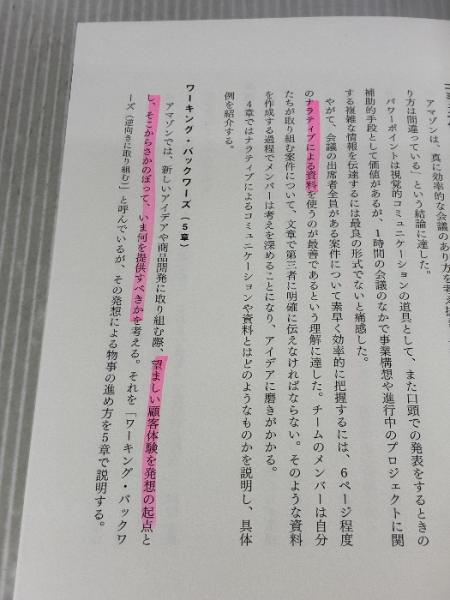 アマゾンは、真に効率的な会議のあり方を考え
り方は間違っている」という結論に達した。
パワーポイントは視覚的コミュニケーションの道具として、また口頭での発表をするときの
補助的手段として価値があるが、1時間の会議のなかで事業構想や進行中のプロジェクトに関
する複雑な情報を伝達するには最良の形式でないと痛感した。
やがて、会議の出席者全員がある案件について素早く効率的に把握するには、6ページ程度
のナラティブによる資料を使うのが最善であるという理解に達した。チームのメンバーは自分
たちが取り組む案件について、文章で第三者に明確に伝えなければならない。そのような資料
を作成する過程でメンバーは考えを深めることになり、アイデアに磨きがかかる。
4章ではナラティブによるコミュニケーションや資料とはどのようなものかを説明し、具体
例を紹介する。
ワーキング・バックワーズ(5章)
アマゾンでは、新しいアイデアや商品開発に取り組む際、望ましい顧客体験を発想の起点と
し、そこからさかのぼって、いま何を提供すべきかを考える。それを「ワーキング・バックワ
ーズ(逆向きに取り組む)」と呼んでいるが、その発想による物事の進め方を5章で説明する。